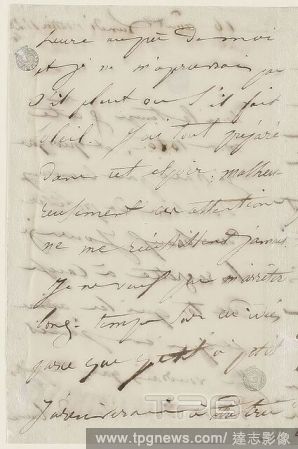 heure auprès de moi
et je ne m'aperçois pas
s'il pleut ou s'il fait
soleil. J'ai tout préparé
dans cet espoir; malheu-
reusement ces attentions
ne me réussissent jamais
Je ne veux pas m'arrêter
long-temps sur ces idées
parce que petit à petit
J'arriverais à
TPG
www.tpgnews.com/ 達志影像